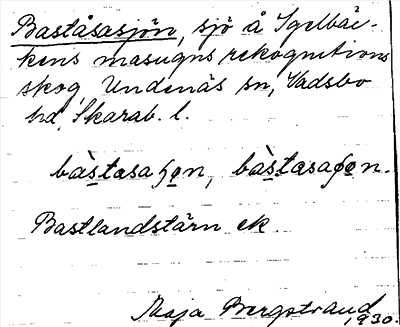 Baståsasjön, sjö å Igelbäc-
kens masugns rekognitions
skog, Undenäs sn, Vadsbo
hd, Skarab. l.
bàstasaɧọn, bàstasaɧọn.
Bastlandstärn ek.
Maja Bergstrand, 1930.